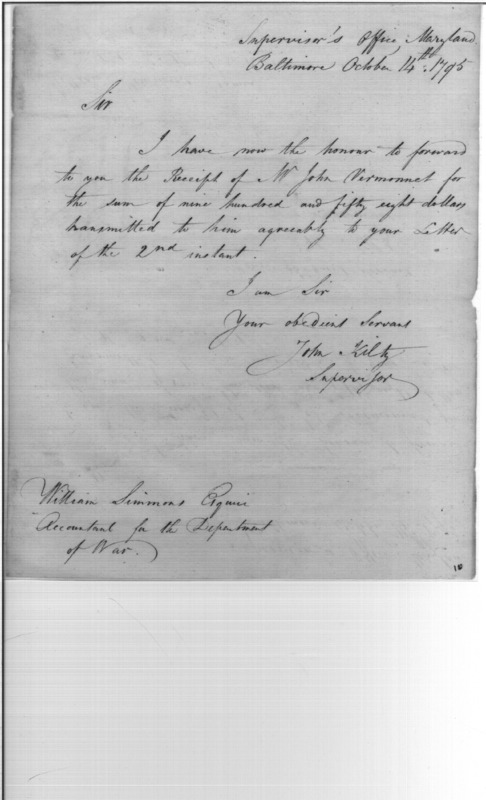 Supervisor's Office Maryland
Baltimore October 14th. 1795
Sir
I have now the honour to forward
to you the Receipt of Mr John Vermonnet for
the sum of nine hundred and fifty eight dollars
transmitted to him agreeably to your Letter
of the 2nd instant.
I am Sir
Your obedient Servant
John Kilty
Supervisor
William Simmons Esquire
Accountant for the Department
of War.